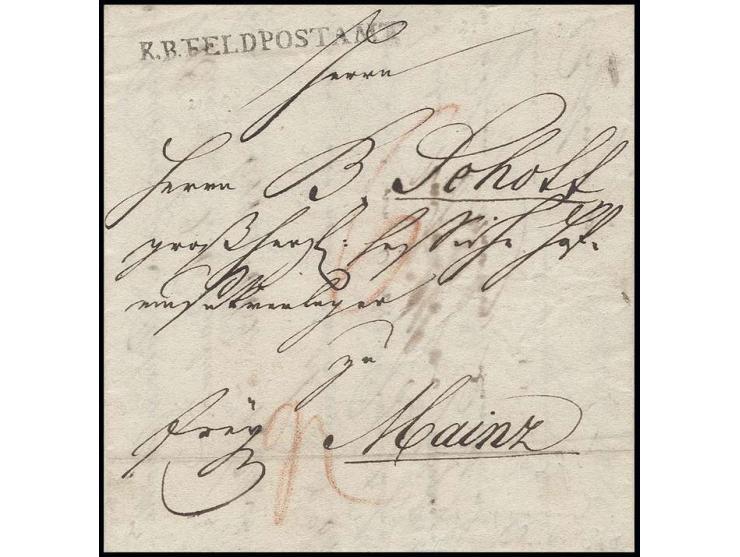 K.B.FELDPOSTAMT
Herrn
Herrn B. Schott
großherzl: hessische Hof-
musikverleger
zu
Frey Mainz